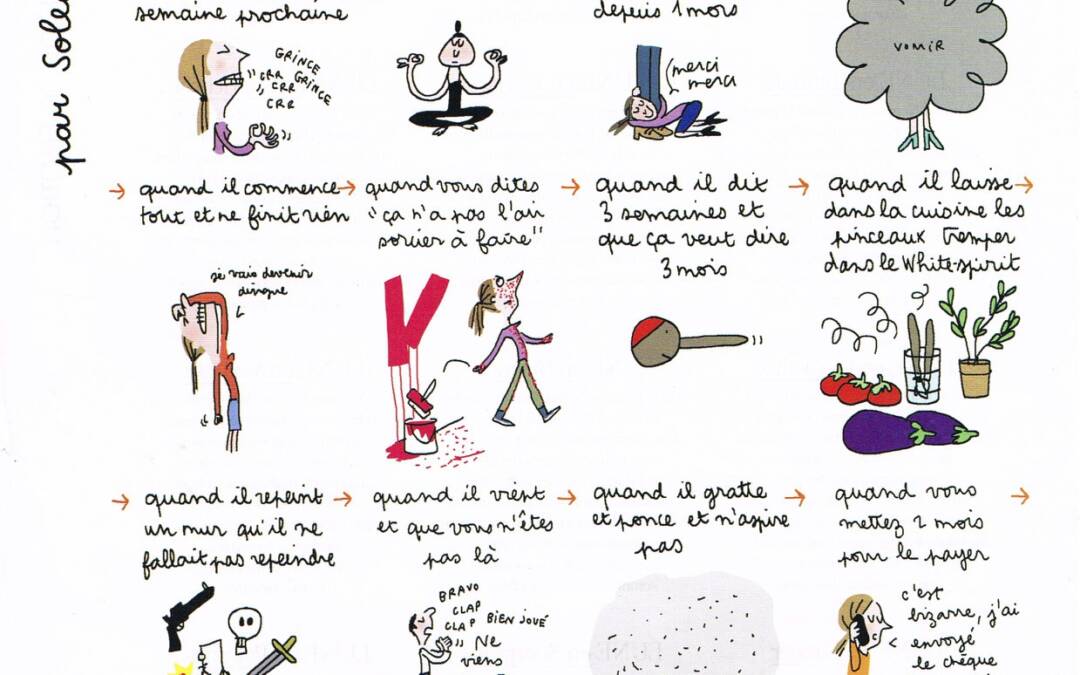 par Sole
semaine prochaine
GRINCE
CRR GRINCE
CRR
CRR
depuis 1 mois
merci
merci
VOMIR
→ quand il commence
tout et ne finit rien
je vais devenir
dingue
→ quand vous dites
"ça n'a pas l'air
sorcier à faire"
→ quand il dit
3 semaines et
que ça veut dire
3 mois
→ quand il laisse →
dans la cuisine les
pinceaux tremper
dans le White-spirit
→ quand il repeint
un mur qu'il ne
fallait pas repeindre
→ quand il vient
et que vous n'êtes
pas là
BRAVO
CLAP
CLAP BIEN JOUÉ
Ne
viens
→ quand il gratte
et ponce et n'aspire
pas
→ quand vous →
mettez 2 mois
pour le payer
c'est
bizarre, j'ai
envoyé
le chèque